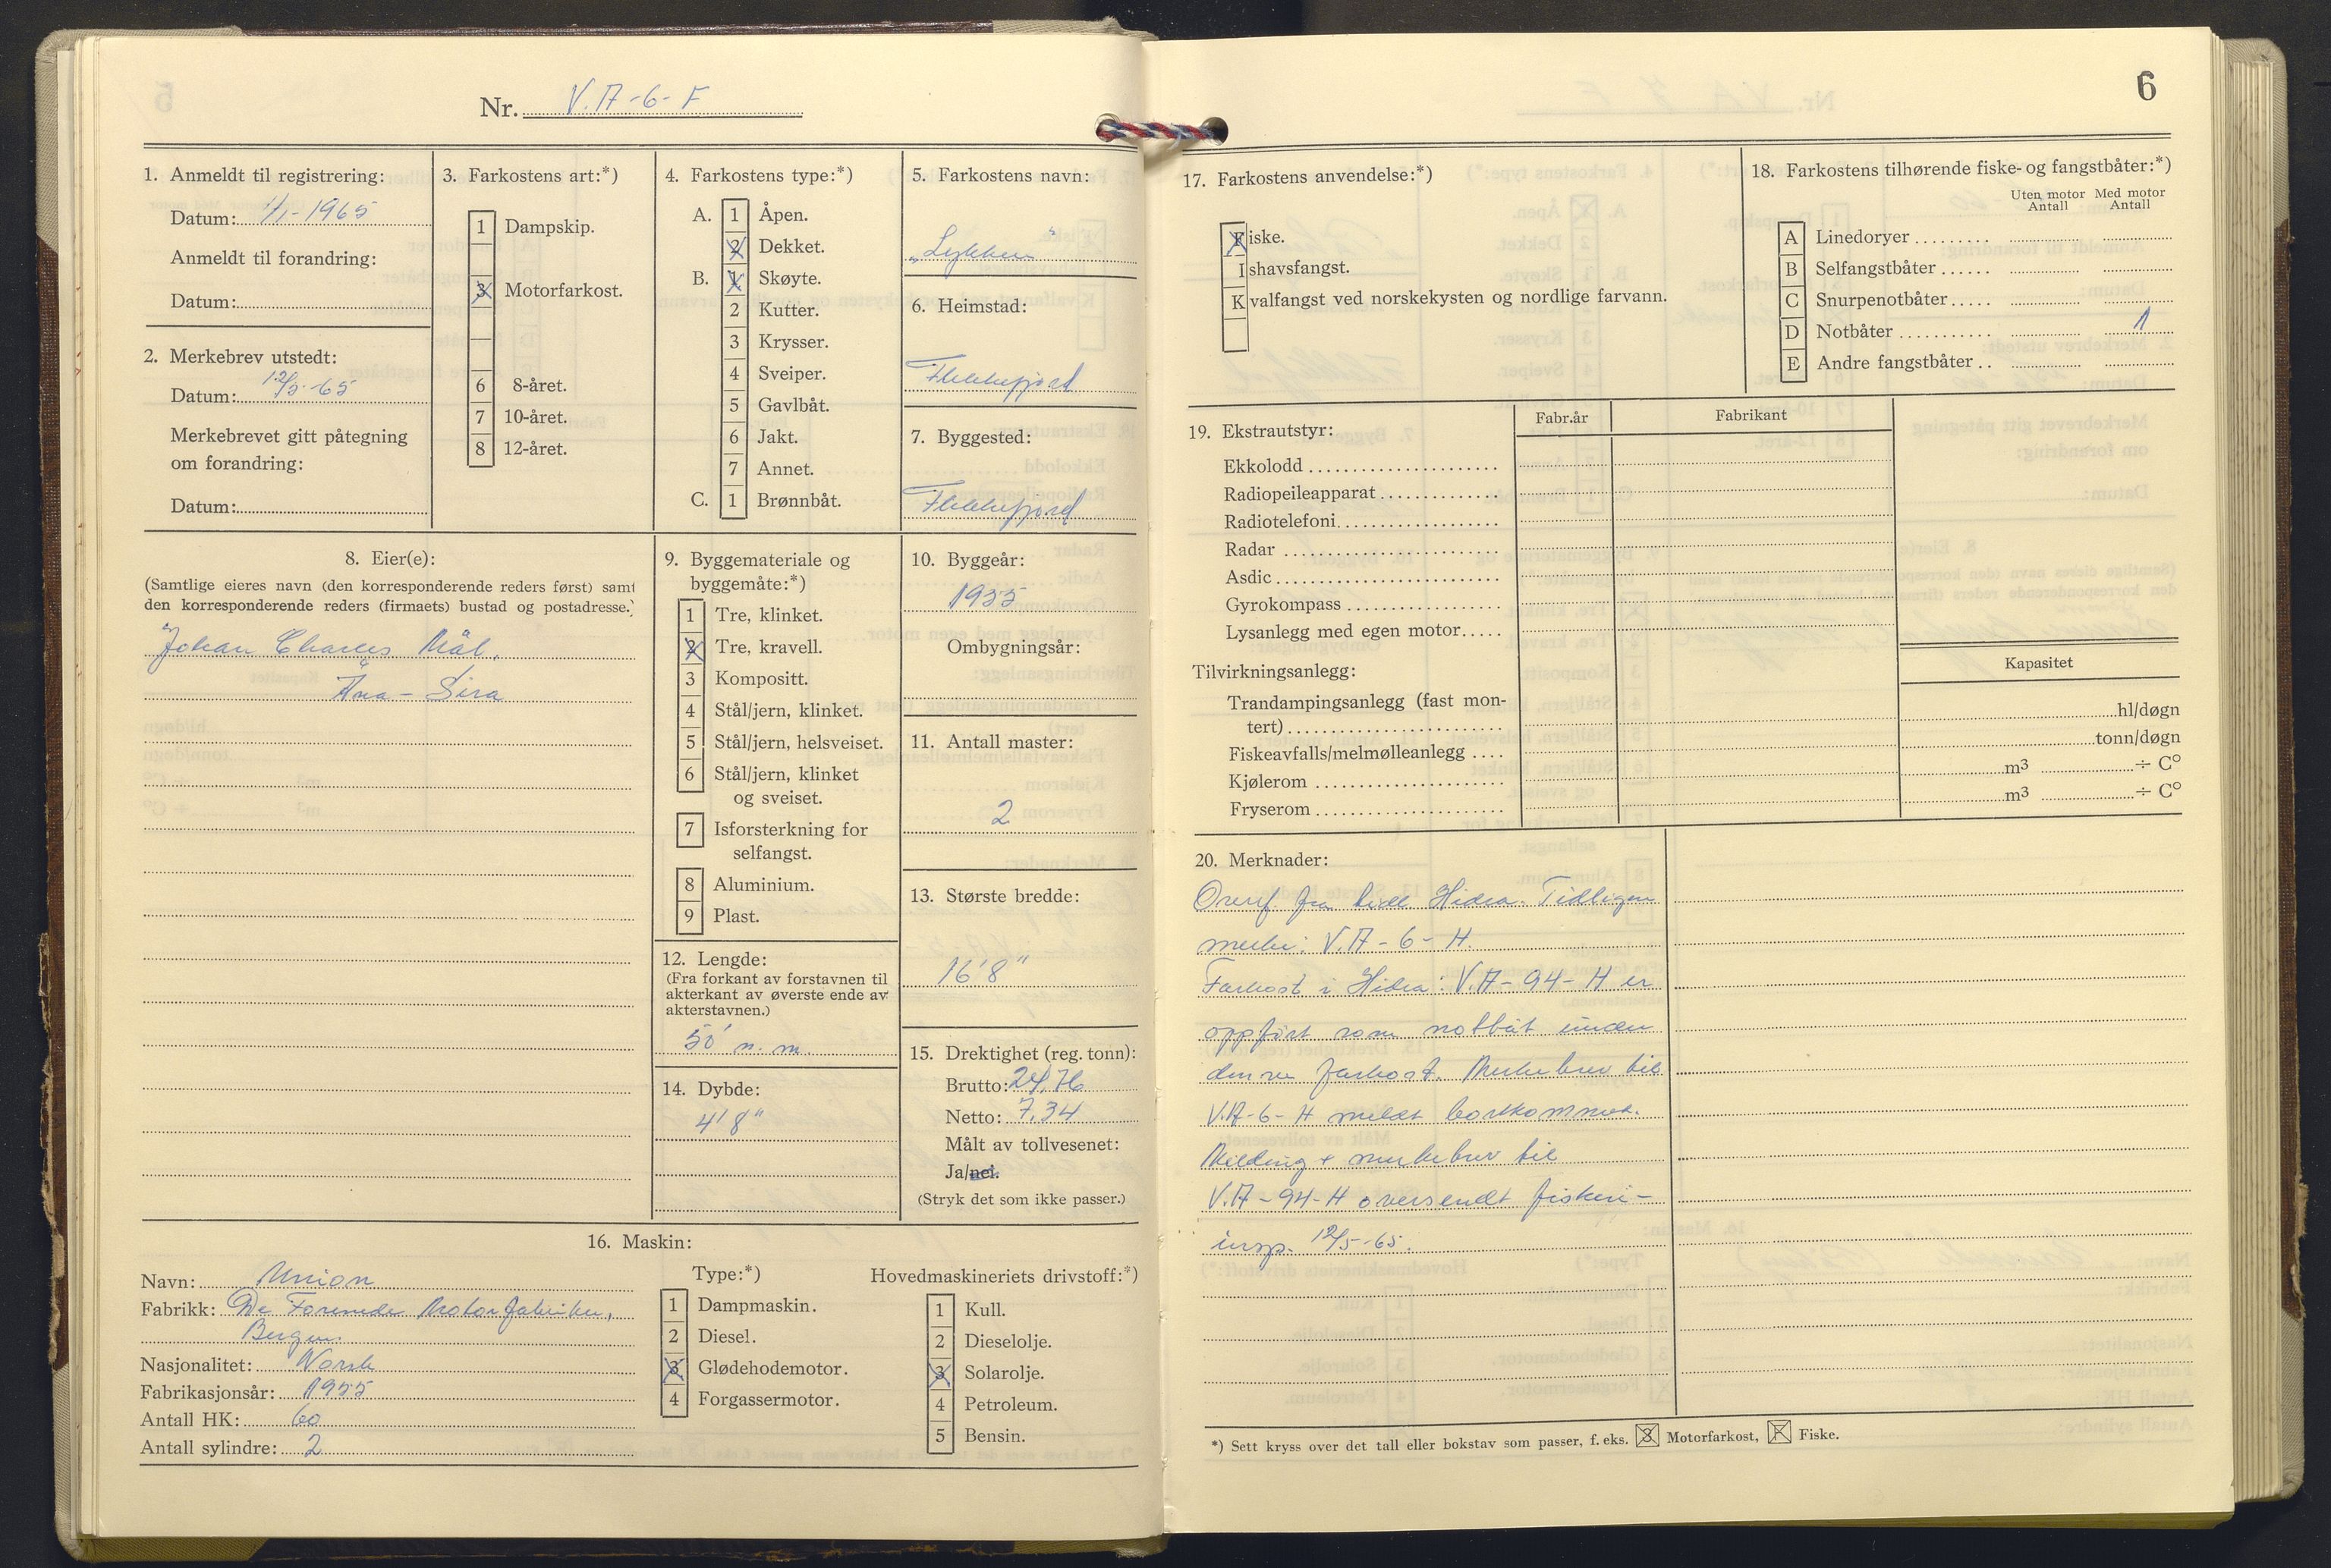 Nr. V.A-6-F
1. Anmeldt til registrering:
Datum: 1/1-1965
Anmeldt til forandring:
Datum:
2. Merkebrev utstedt:
Datum: 12/5-65
Merkebrevet gitt påtegning
om forandring:
Datum:
3. Farkostens art:*)
1 Dampskip.
3 Motorfarkost.
6 8-året.
7 10-året.
8 12-året.
4. Farkostens type:*)
A. 1 Åpen.
2 Dekket.
B. 1 Skøyte.
2 Kutter.
3 Krysser.
4 Sveiper.
5 Gavlbåt.
6 Jakt.
7 Annet.
C. 1 Brønnbåt.
5. Farkostens navn:
„Lykken"
6. Heimstad:
Flekkefjord
7. Byggested:
Flekkefjord
8. Eier(e):
(Samtlige eieres navn (den korresponderende reders først) samt
den korresponderende reders (firmaets) bustad og postadresse.)
Johan Charles Mål.
Åna-Sira
9. Byggemateriale og
byggemåte:*)
1 Tre, klinket.
2 Tre, kravell.
3 Kompositt.
4 Stål/jern, klinket.
5 Stål/jern, helsveiset.
6 Stål/jern, klinket
og sveiset.
7 Isforsterkning for
selfangst.
8 Aluminium.
9 Plast.
10. Byggeår:
1955
Ombygningsår:
11. Antall master:
2
12. Lengde:
(Fra forkant av forstavnen til
akterkant av øverste ende av
akterstavnen.)
50' n.m.
13. Største bredde:
16'8"
14. Dybde:
4'8"
15. Drektighet (reg. tonn):
Brutto: 24,76
Netto: 7,34
Målt av tollvesenet:
Ja/nei.
(Stryk det som ikke passer.)
16. Maskin:
Navn: Union
Fabrikk: De Forenede Motorfabrikker,
Bergen.
Nasjonalitet: Norsk
Fabrikasjonsår: 1955
Antall HK: 60
Antall sylindre: 2
Type:*)
1 Dampmaskin.
2 Diesel.
3 Glødehodemotor.
4 Forgassermotor.
Hovedmaskineriets drivstoff:*)
1 Kull.
2 Dieselolje.
3 Solarolje.
4 Petroleum.
5 Bensin.
6
17. Farkostens anvendelse:*)
Fiske.
Ishavsfangst.
Kvalfangst ved norskekysten og nordlige farvann.
18. Farkostens tilhørende fiske- og fangstbåter:*)
Uten motor Med motor
Antall Antall
A Linedoryer
B Selfangstbåter
C Snurpenotbåter
D Notbåter 1
E Andre fangstbåter
19. Ekstrautstyr:
Fabr.år Fabrikant
Ekkolodd
Radiopeileapparat
Radiotelefoni
Radar
Asdic
Gyrokompass
Lysanlegg med egen motor
Tilvirkningsanlegg:
Kapasitet
Trandampingsanlegg (fast mon-
tert) hl/døgn
Fiskeavfalls/melmølleanlegg tonn/døgn
Kjølerom m³ ÷ C°
Fryserom m³ ÷ C°
20. Merknader:
Overf. fra tidl Hidra. Tidligere
merke: V.A-6-H.
Farkost i Hidra: V.A-94-H er
oppført som notbåt under
denne farkost. Merkebrev til
V.A-6-H meldt bortkommet.
Melding + merkebrev til
V.A-94-H oversendt fiskeri-
insp. 12/5-65.
*) Sett kryss over det tall eller bokstav som passer, f. eks. 3 Motorfarkost, F Fiske.